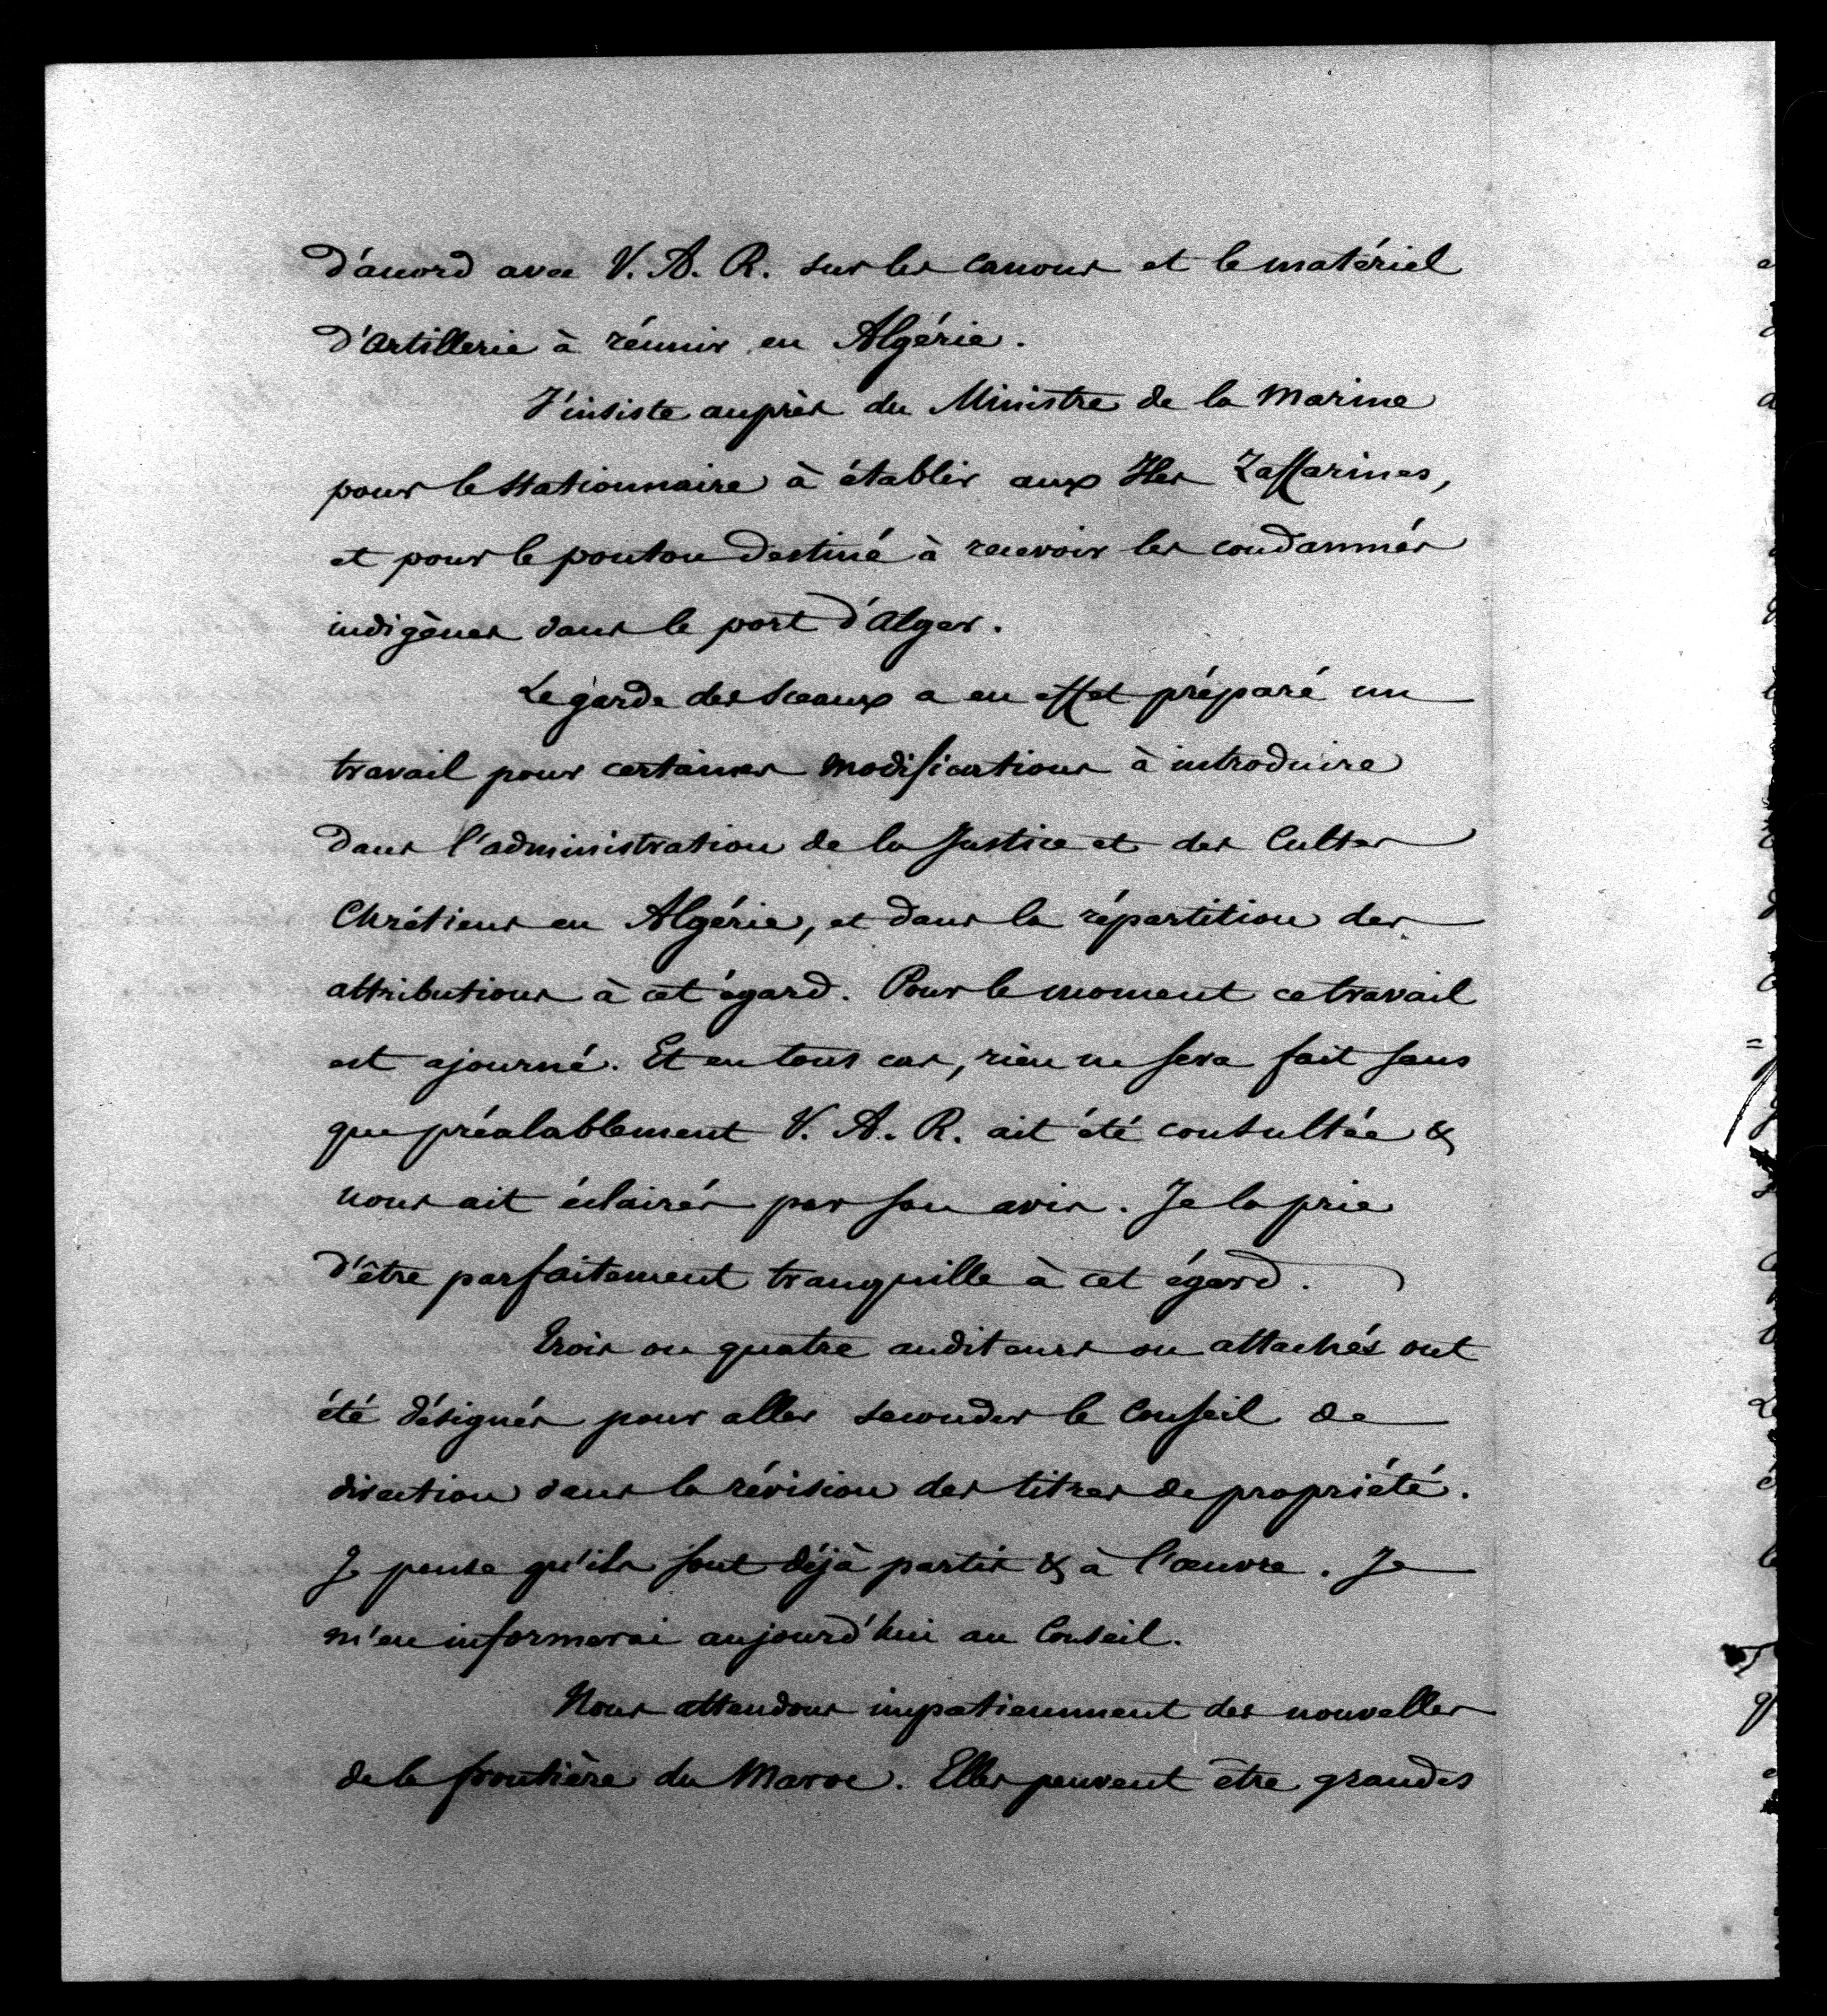 d'accord avec V. A. R. sur les canons et le matériel
d'Artillerie à réunir en Algérie.
J'insiste auprès du Ministre de la Marine
pour le stationnaire à établir aux Iles Zaffarines,
et pour le ponton destiné à recevoir les condamnés
indigènes dans le port d'Alger.
Le garde des Sceaux a en effet préparé un
travail pour certaines modifications à introduire
dans l'administration de la Justice et des Cultes
Chrétiens en Algérie, et dans la répartition des
attributions à cet égard. Pour le moment ce travail
est ajourné. Et en tous cas, rien ne sera fait sans
que préalablement V. A. R. ait été consultée &
nous ait éclairés par son avis. Je la prie
d'être parfaitement tranquille à cet égard.
Trois ou quatre auditeurs ou attachés ont
été désignés pour aller seconder le Conseil de
direction dans la révision des titres de propriété.
Je pense qu'ils sont déjà partis & à l'œuvre. Je
m'en informerai aujourd'hui au Conseil.
Nous attendons impatiemment des nouvelles
de la frontière du Maroc. Elles peuvent être grandes